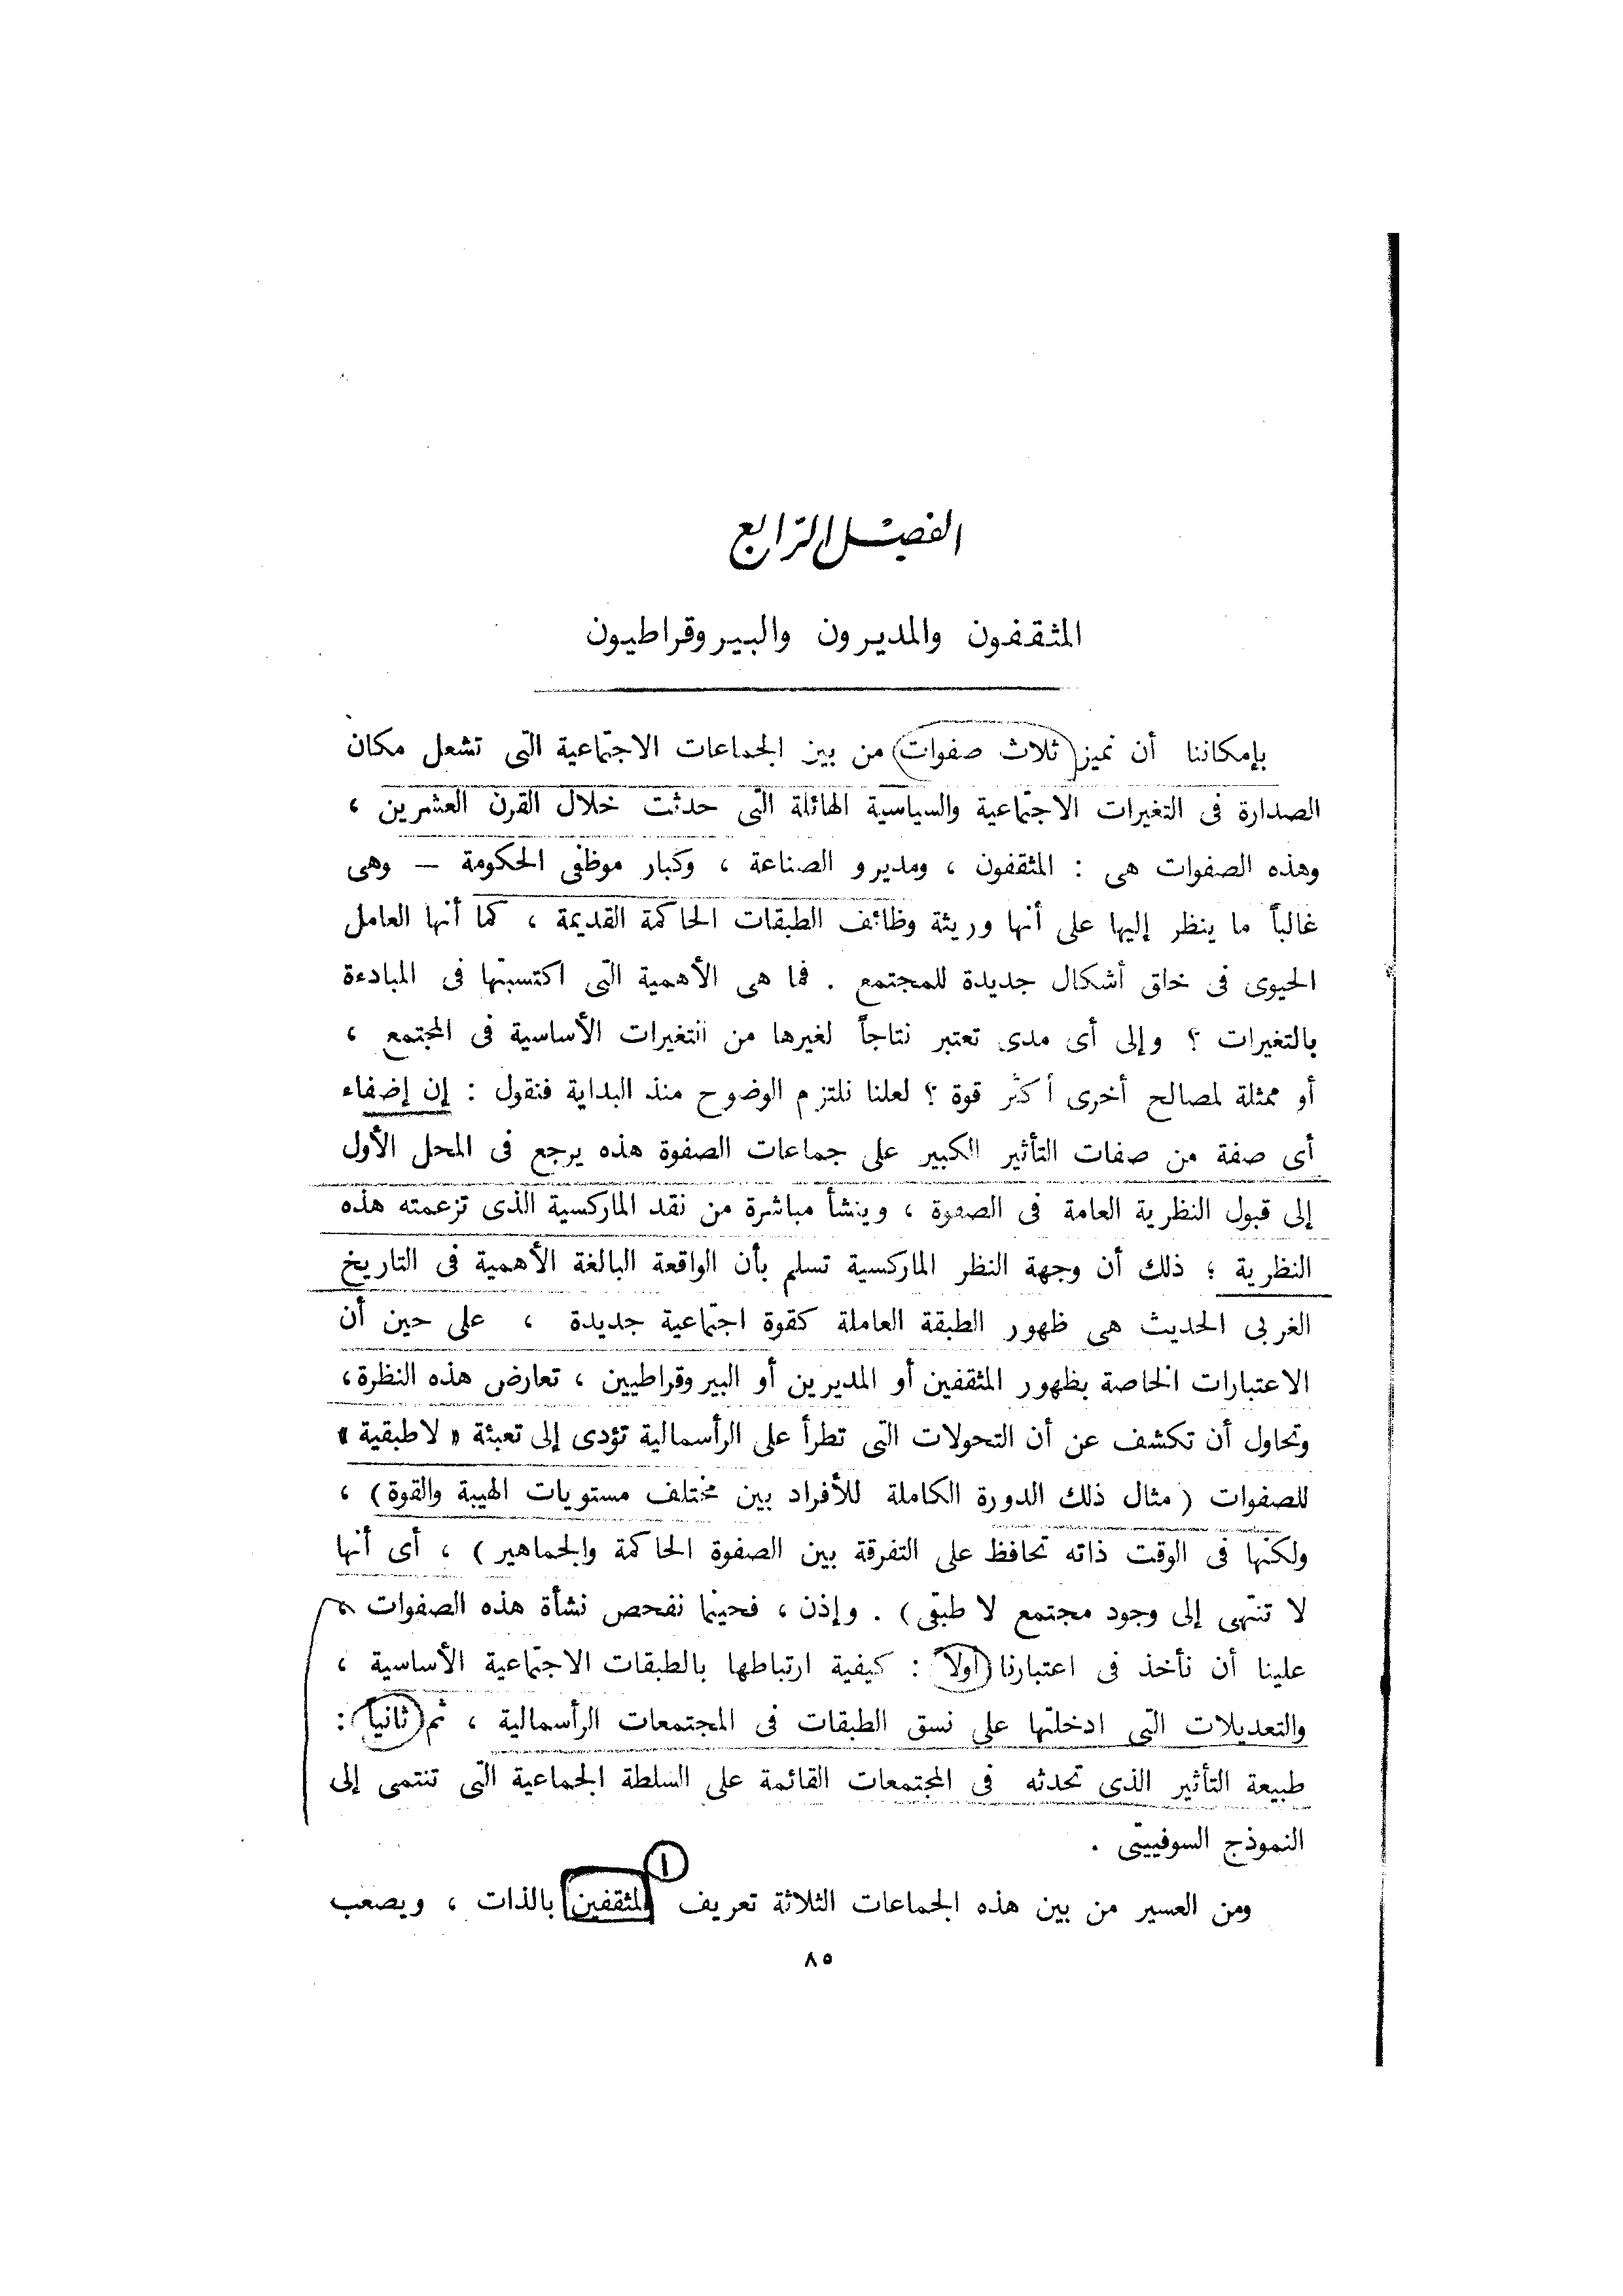 الفصل الرابع
المثقفون والمديرون والبيروقراطيون
بإمكاننا أن نميز ثلاث صفوات من بين الجماعات الاجتماعية التى تشعل مكان
الصدارة فى التغيرات الاجتماعية والسياسية الهائلة التى حدثت خلال القرن العشرين ،
وهذه الصفوات هى : المثقفون ، ومديرو الصناعة ، وكبار موظفى الحكومة – وهى
غالباً ما ينظر إليها على أنها وريثة وظائف الطبقات الحاكمة القديمة ، كما أنها العامل
الحيوى فى خلق أشكال جديدة للمجتمع . فما هى الأهمية التى اكتسبتها فى المبادءة
بالتغيرات ؟ وإلى أى مدى تعتبر نتاجاً لغيرها من التغيرات الأساسية فى المجتمع ،
أو ممثلة لمصالح أخرى أكثر قوة ؟ لعلنا نلتزم الوضوح منذ البداية فنقول : إن إضفاء
أى صفة من صفات التأثير الكبير على جماعات الصفوة هذه يرجع فى المحل الأول
إلى قبول النظرية العامة فى الصفوة ، وينشأ مباشرة من نقد الماركسية الذى تزعمته هذه
النظرية ؛ ذلك أن وجهة النظر الماركسية تسلم بأن الواقعة البالغة الأهمية فى التاريخ
الغربى الحديث هى ظهور الطبقة العاملة كقوة اجتماعية جديدة ، على حين أن
الاعتبارات الخاصة بظهور المثقفين أو المديرين أو البيروقراطيين ، تعارض هذه النظرة ،
وتحاول أن تكشف عن أن التحولات التى تطرأ على الرأسمالية تؤدى إلى تعبئة « لاطبقية »
للصفوات ( مثال ذلك الدورة الكاملة للأفراد بين مختلف مستويات الهيبة والقوة ) ،
ولكنها فى الوقت ذاته تحافظ على التفرقة بين الصفوة الحاكمة والجماهير ) ، أى أنها
لا تنتهى إلى وجود مجتمع لا طبقى ) . وإذن ، فحينما نفحص نشأة هذه الصفوات
علينا أن نأخذ فى اعتبارنا أولاً : كيفية ارتباطها بالطبقات الاجتماعية الأساسية ،
والتعديلات التى ادخلتها على نسق الطبقات فى المجتمعات الرأسمالية ، ثم ثانياً :
طبيعة التأثير الذى تحدثه فى المجتمعات القائمة على السلطة الجماعية التى تنتمى إلى
النموذج السوفييتى .
١
ومن العسير من بين هذه الجماعات الثلاثة تعريف المثقفين بالذات ، ويصعب
٨٥